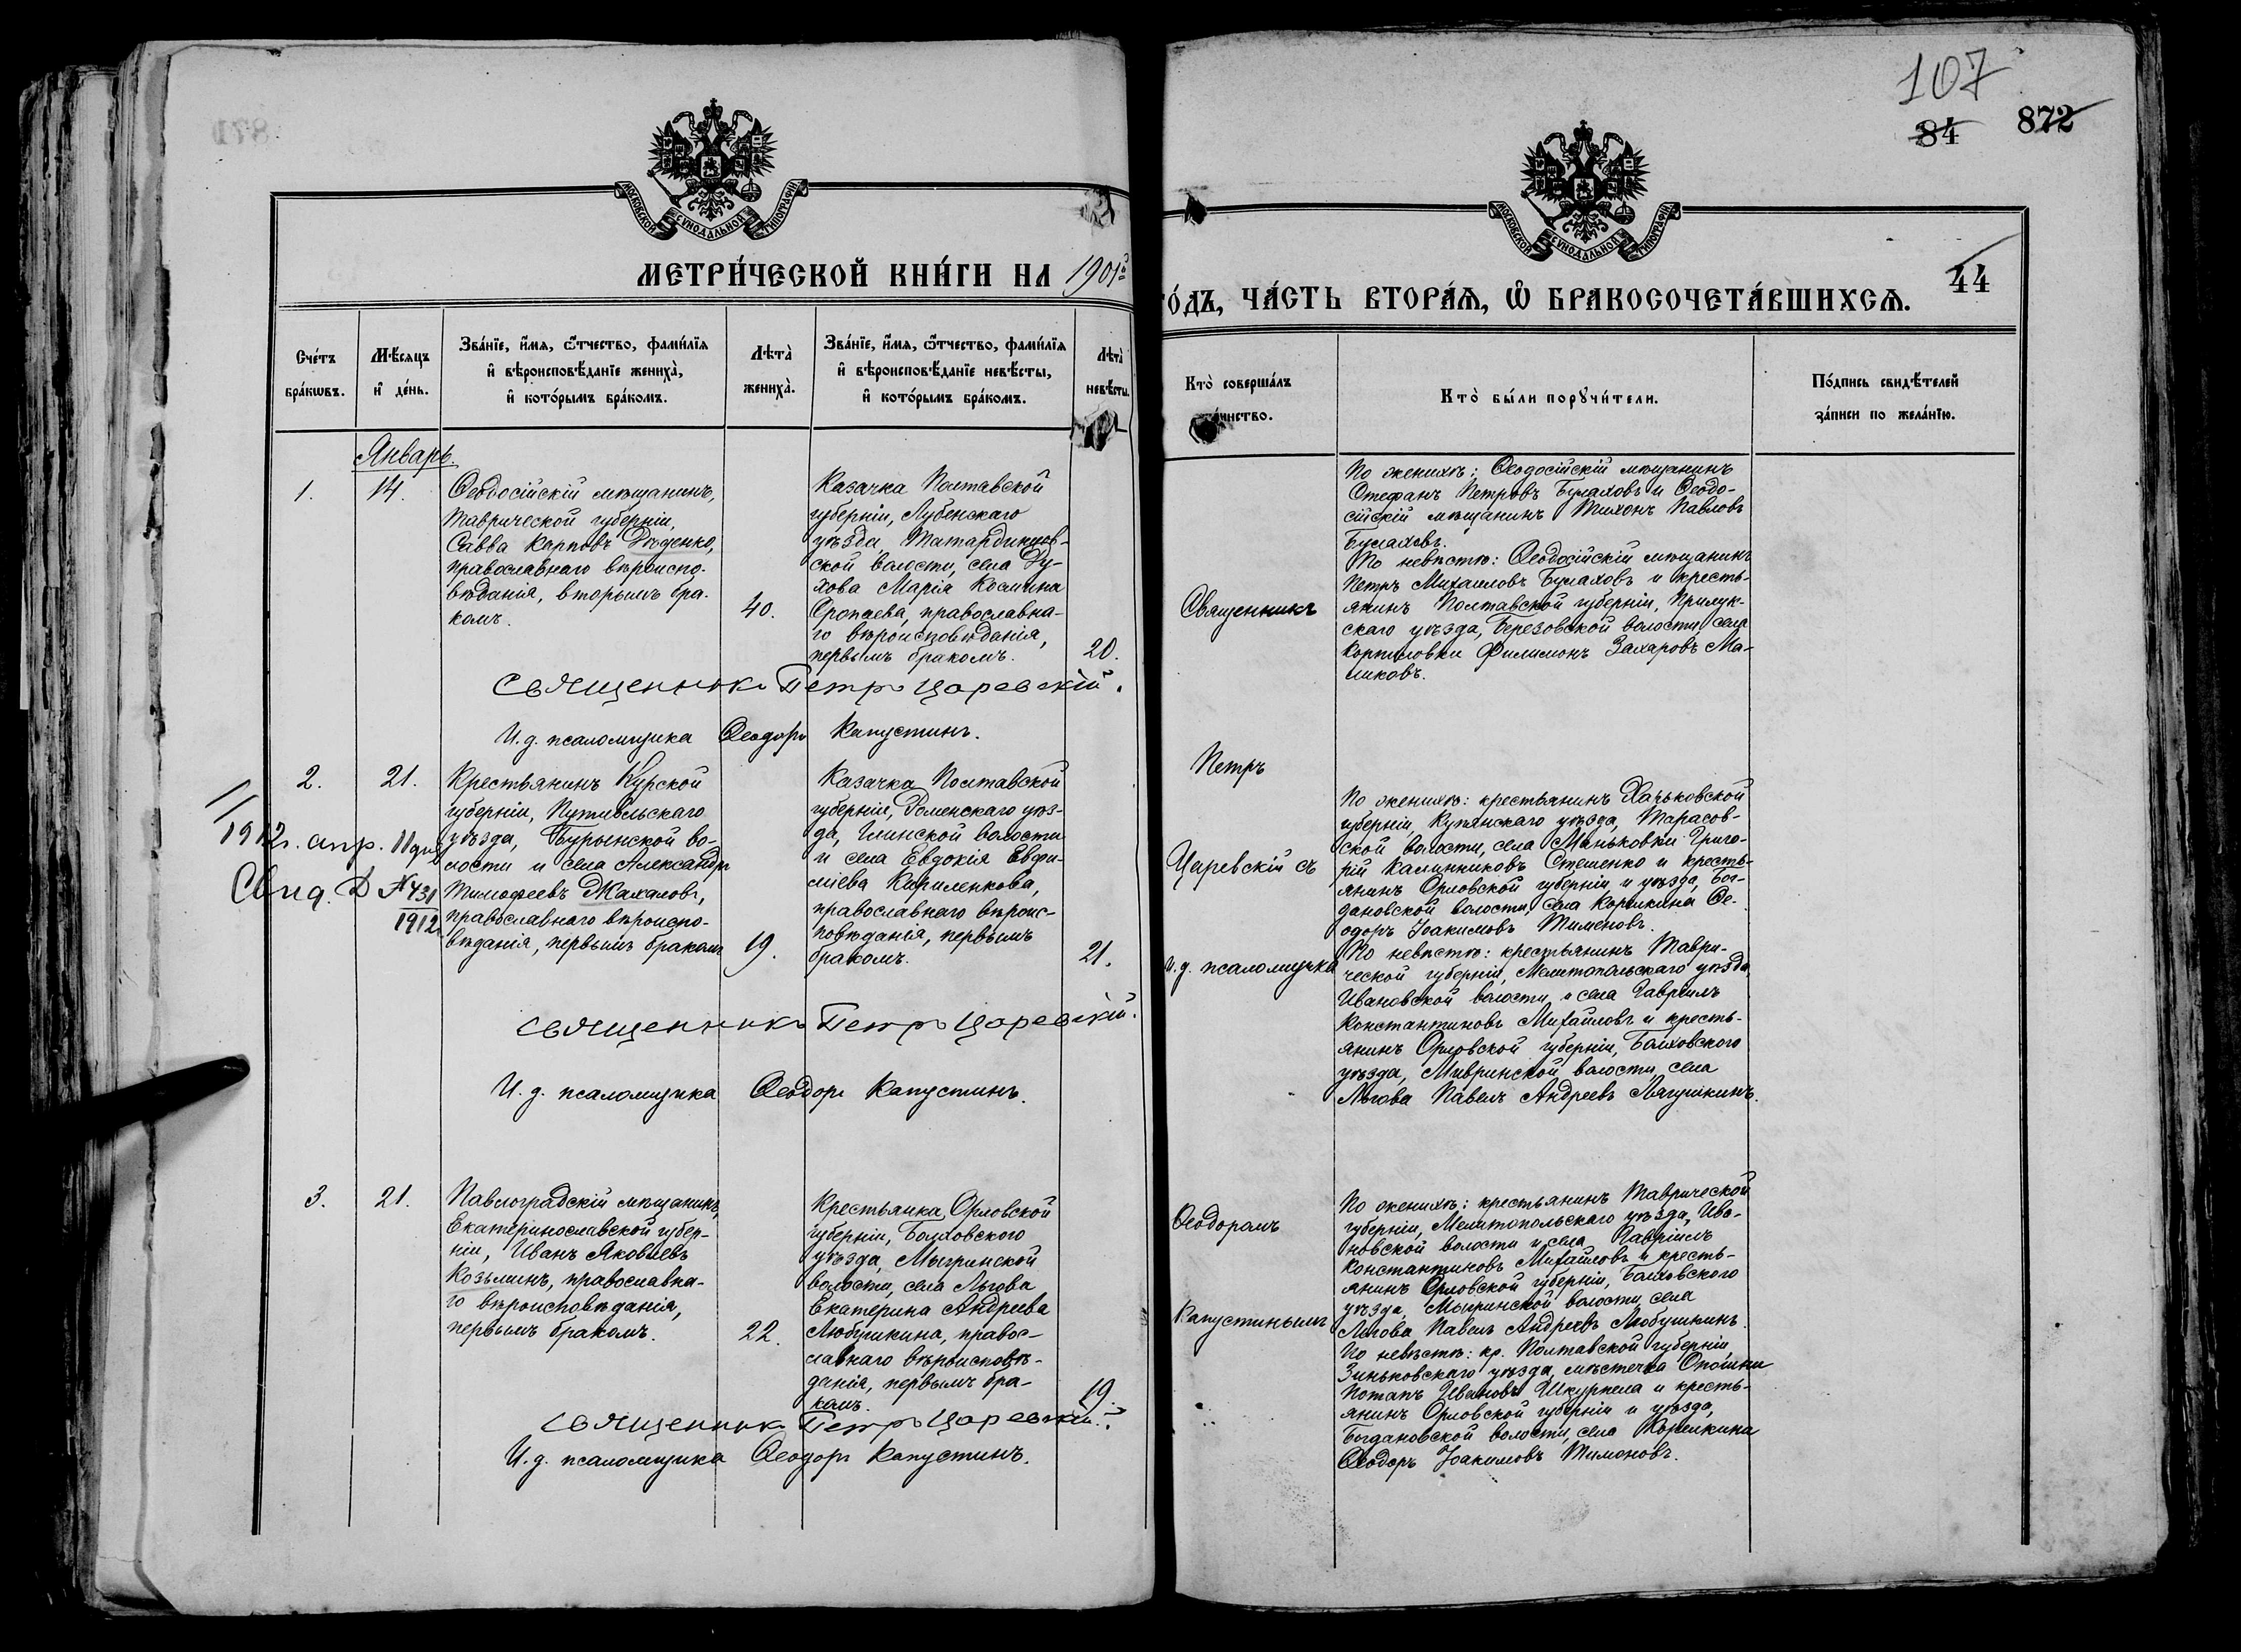 107
84
872
МОСКОВСКОЙ СѴНОДАЛЬНОЙ ТИПОГРАФІИ
МОСКОВСКОЙ СѴНОДАЛЬНОЙ ТИПОГРАФІИ
МЕТРИ́ЧЕСКОЙ КНИ́ГИ НА 1901й
ГО́ДЪ, ЧА́СТЬ ВТОРА́Ѧ, Ѽ БРАКОСОЧЕТА́ВШИХСѦ.
44
Сче́тъ
бра́кѡвъ.
Мѣ́сѧцъ
и҆ де́нь.
Зва́нїе, и҆́мѧ, ѻ҆́тчество, фами́лїѧ
и҆ вѣроисповѣ́данїе жениха̀,
и҆ кото́рымъ бра́комъ.
Лѣта̀
жениха̀.
Зва́нїе, и҆́мѧ, ѻ҆́тчество, фами́лїѧ
и҆ вѣроисповѣ́данїе невѣ́сты,
и҆ кото́рымъ бра́комъ.
Лѣта̀
невѣ́сты.
Кто̀ соверша́лъ
таинство.
Кто̀ бы́ли порꙋчи́тели.
По́дпись свидѣ́телей
за́писи по жела́нїю.
Январь.
1.
14.
Ѳеодосійскій мѣщанинъ,
Таврической губерніи,
Савва Карповъ Дѣденко,
православнаго вѣроиспо-
вѣданія, вторымъ бра-
комъ.
40.
Казачка Полтавской
губерніи, Лубенскаго
уѣзда,
ской волости, села Ду-
хова Марія Космина
православна-
го вѣроисповѣданія,
первымъ бракомъ.
20.
Священникъ
По женихѣ: Ѳеодосійскій мѣщанинъ
Стефанъ Петровъ Булаховъ и Ѳеодо-
сійскій мѣщанинъ Тихонъ Павловъ
Булаховъ.
По невѣстѣ: Ѳеодосійскій мѣщанинъ
Петръ Михаиловъ Булаховъ и кресть-
янинъ Полтавской губерніи, Прилук-
скаго уѣзда, Березовской волости, села
Корниловки Филимонъ Захаровъ Ма-
ликовъ.
Священникъ Петръ Царевскій.
И. д. псаломщика Ѳеодоръ Капустинъ.
2.
21.
1912г. апр. 11 дня
Свид. № 431
1912
Крестьянинъ Курской
губерніи, Путивльскаго
уѣзда, Бурынской во-
лости и села Александръ
Тимоѳеевъ Жахаловъ,
православнаго вѣроиспо-
вѣданія, первымъ бракомъ
19.
Казачка Полтавской
губерніи, Роменскаго уѣз-
да, Глинской волости
и села Евдокія Евфи-
міева Кириленкова,
православнаго вѣроис-
повѣданія, первымъ
бракомъ.
21.
Петръ
Царевскій съ
и. д. псаломщика
По женихѣ: крестьянинъ Харьковской
губерніи, Купянскаго уѣзда, Тарасов-
ской волости, села Маньковки Григо-
рій Калинниковъ Стешенко и кресть-
янинъ Орловской губерніи и уѣзда, Бог-
дановской волости, села Корелкина Ѳе-
одоръ Іоакимовъ Тимоновъ.
По невѣстѣ: крестьянинъ Таври-
ческой губерніи, Мелитопольскаго уѣзда,
Ивановской волости и села Гавріилъ
Константиновъ Михайловъ и кресть-
янинъ Орловской губерніи, Болховского
уѣзда, волости, села
Льгова Павелъ Андреевъ Лягушкинъ.
Священникъ Петръ Царевскій.
И. д. псаломщика Ѳеодоръ Капустинъ.
3.
21.
Павлоградскій мѣщанинъ,
Екатеринославской губер-
ніи, Иванъ Яковлевъ
Козьминъ, православна-
го вѣроисповѣданія,
первымъ бракомъ.
22.
Крестьянка Орловской
губерніи, Болховского
уѣзда, Мыгринской
волости, села Льгова
Екатерина Андреева
Любушкина, правос-
лавнаго вѣроисповѣ-
данія, первымъ бра-
комъ.
19.
Ѳеодоромъ
Капустинымъ
По женихѣ: крестьянинъ Таврической
губерніи, Мелитопольскаго уѣзда, Ива-
новской волости и села Гавріилъ
Константиновъ Михайловъ и кресть-
янинъ Орловской губерніи, Болховского
уѣзда, Мыгринской волости, села
Льгова Павелъ Андреевъ Любушкинъ.
По невѣстѣ: кр. Полтавской губерніи,
Зиньковскаго уѣзда, мѣстечка Опошни
Потапъ Ивановъ Шкурпела и кресть-
янинъ Орловской губерніи и уѣзда,
Богдановской волости, села Корелкина
Ѳеодоръ Іоакимовъ Тимоновъ.
Священникъ Петръ Царевскій.
И. д. псаломщика Ѳеодоръ Капустинъ.